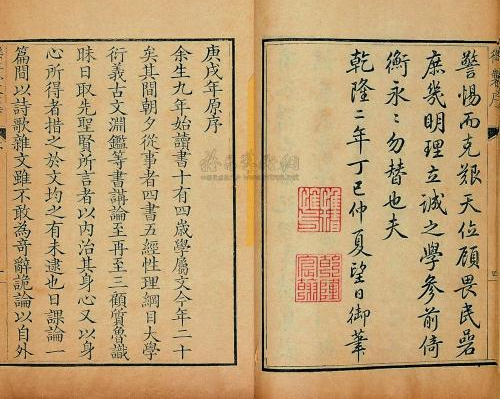 警惕而克艱天位顧畏民碞
庶幾明理立誠之學參前倚
衡永〻勿替也夫
乾隆二年丁巳仲夏望日御筆
庚戌年原序
余生九年始讀書十有四歲學屬文今年二十
矣其間朝夕從事者四書五經性理綱目大學
衍義古文淵鑑等書講論至再至三顧質魯識
昧日取先聖賢所言者以內治其身心又以身
心所得者措之於文均之有未逮也日課論一
篇間以詩歌雜文雖不敢為奇辭詭論以自外